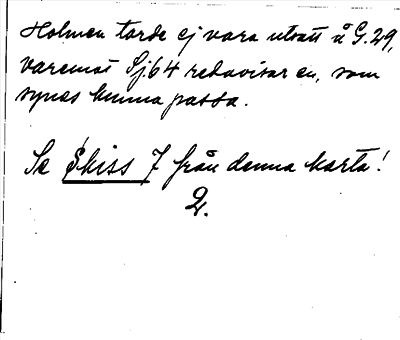 Holmen torde ej vara utsatt å G.29,
varemot Sj.64 redovisar en, som
synes kunna passa.
Se Skiss 7 från denna karta!
2.